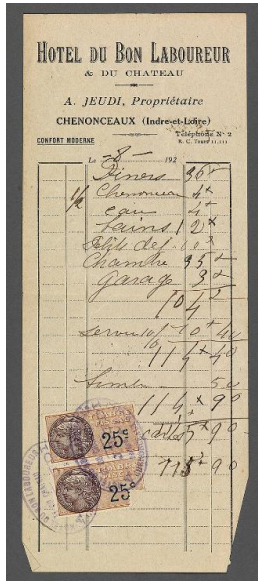 HOTEL DU BON LABOUREUR
& DU CHATEAU
A. JEUDI, Propriétaire
CHENONCEAUX (Indre-et-Loire)
CONFORT MODERNE
Téléphone N° 2
R. C. Tours 11.111
Le 8 192
Diners 36
1/2 Chenonceau 4
eau 4
Bains 12
Ptits déj. 10
Chambre 35
Garage 3
104
Service 10% 10 40
114 40
Timbre 50
114 90
cartes 90
90
25c
25c